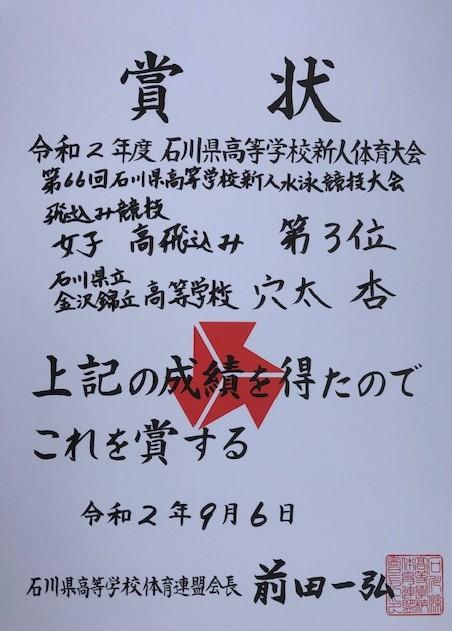 賞状
令和2年度 石川県高等学校新人体育大会
第66回石川県高等学校新人水泳競技大会
飛込み競技
女子 高飛込み 第3位
石川県立
金沢錦丘高等学校 穴太 杏
上記の成績を得たので
これを賞する
令和2年9月6日
石川県高等学校体育連盟会長 前田一弘